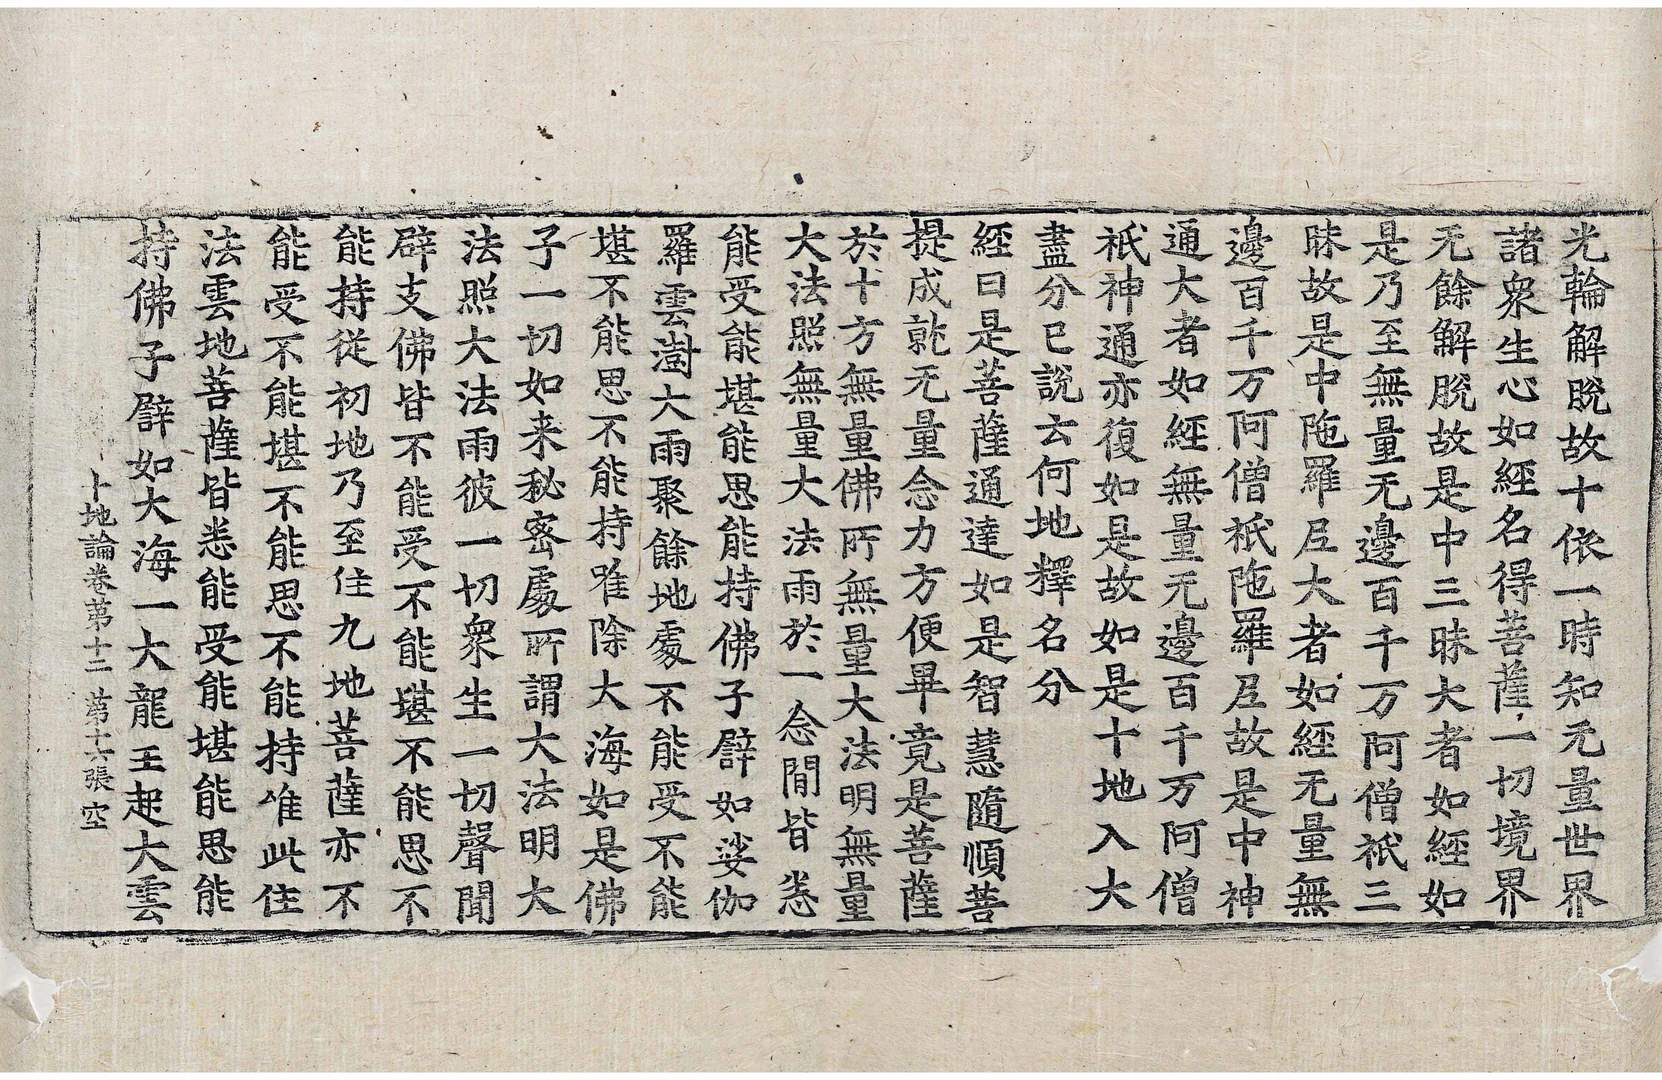 光輪解脫故十依一時知无量世界
諸衆生心如經名得菩薩一切境界
无餘解脫故是中三昧大者如經如
是乃至無量无邊百千万阿僧祇三
昧故是中陁羅𡰱大者如經无量無
邊百千万阿僧祇陁羅𡰱故是中神
通大者如經無量无邊百千万阿僧
祇神通亦復如是故如是十地入大
盡分已說云何地釋名分
經曰是菩薩通達如是智慧隨順菩
提成就无量念力方便畢竟是菩薩
於十方無量佛所無量大法明無量
大法照無量大法雨於一念閒皆悉
能受能堪能思能持佛子譬如娑伽
羅雲澍大雨聚餘地處不能受不能
堪不能思不能持唯除大海如是佛
子一切如来秘密處所謂大法明大
法照大法雨彼一切衆生一切聲聞
辟支佛皆不能受不能堪不能思不
能持從初地乃至住九地菩薩亦不
能受不能堪不能思不能持唯此住
法雲地菩薩皆悉能受能堪能思能
持佛子譬如大海一大龍王起大雲
十地論卷第十二 第十六張 空